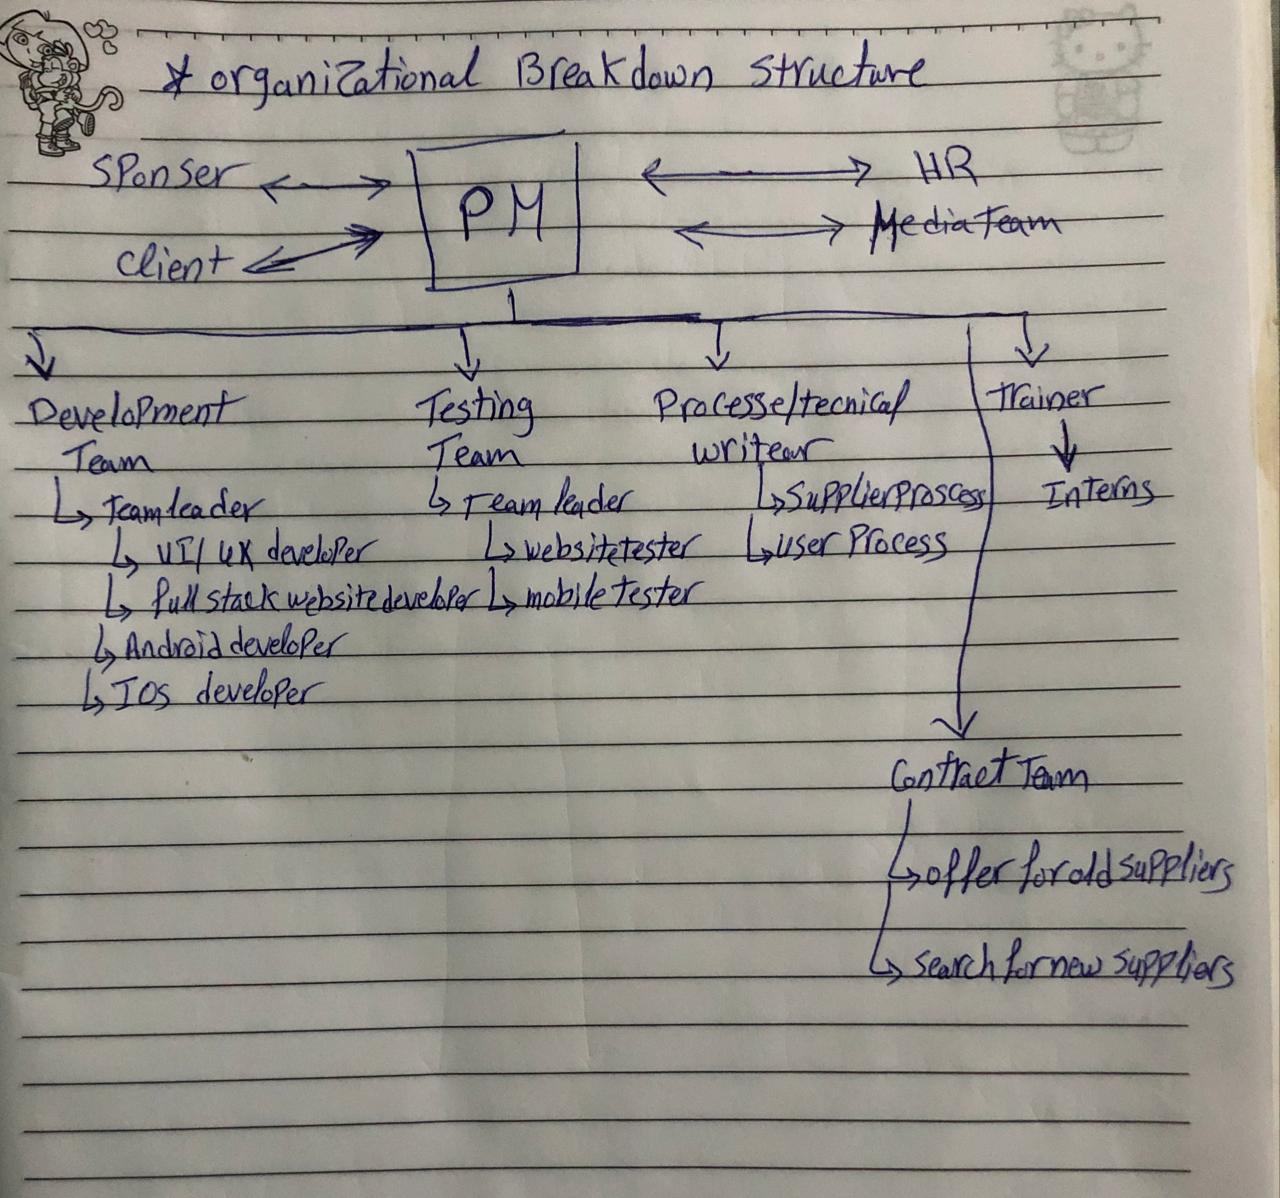 * organizational Breakdown structure
SPonser
PM
HR
Client
Media Team
Development
Team
Team leader
UI/UX developer
full stack website developer
Android developer
IOS developer
Testing
Team
Team leader
website tester
mobile tester
Processe/tecnical
writear
Supplier Proscess
user Process
Trainer
Interns
Contract Team
offer for old suppliers
search for new suppliers